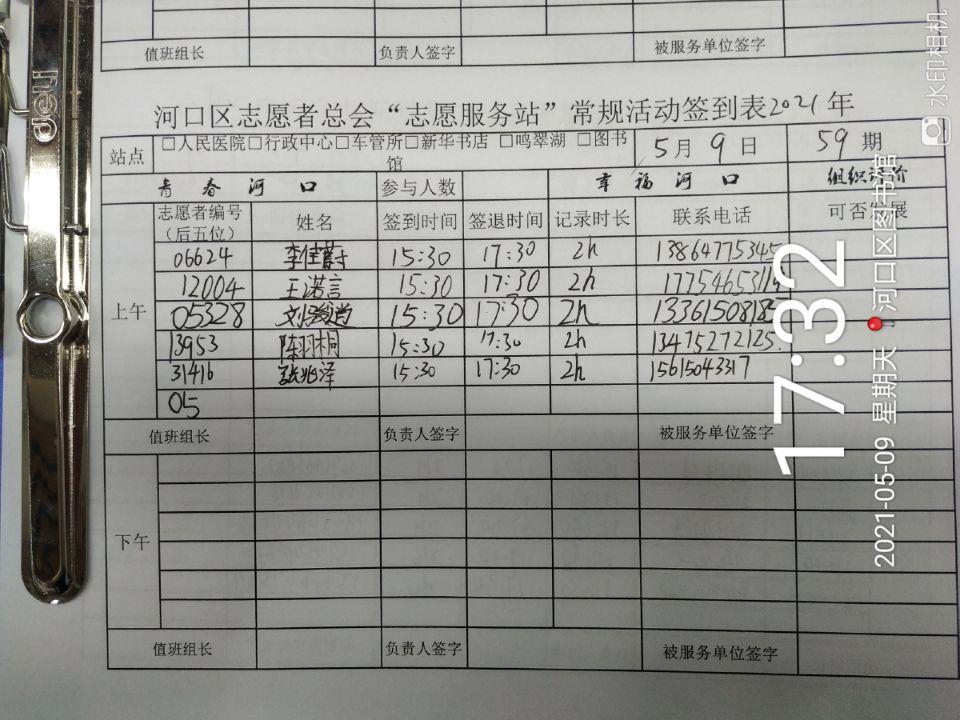 值班组长 负责人签字 被服务单位签字
河口区志愿者总会“志愿服务站”常规活动签到表2021年
站点 □人民医院□行政中心□车管所□新华书店 □鸣翠湖 □图书馆 5月9日 59期
青春河口 参与人数 幸福河口 组织评价
志愿者编号（后五位） 姓名 签到时间 签退时间 记录时长 联系电话 可否发展
上午
06624 15:30 17:30 2h 13864775345
12004 王诺言 15:30 17:30 2h
05328 15:30 17:30 2h
13953 陈羽桐 15:30 17:30 2h 13475272125
31416 张兆泽 15:30 17:30 2h 15615043317
05
值班组长 负责人签字 被服务单位签字
下午
值班组长 负责人签字 被服务单位签字
deli
水印相机
17:32
2021-05-09 星期天 河口区图书馆